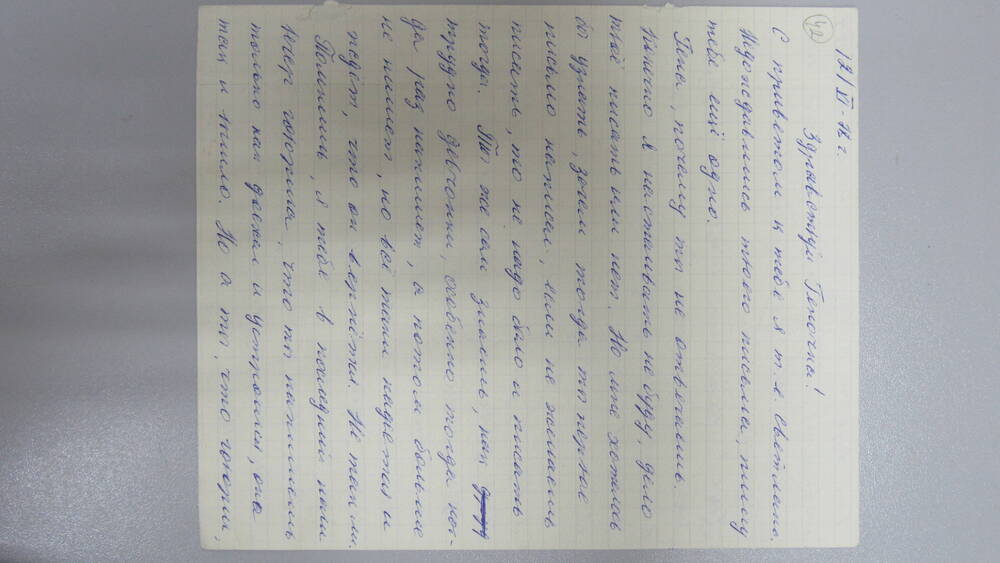 12/XI-78 г.
42
Здравствуй Геночка!
С приветом к тебе я т. е. Светлана.
Недождавшись твоего письма, пишу
тебе ещё одно.
Гена, почему ты не отвечаешь.
Конечно я настаивать не буду, дело
твоё писать или нет. Но мне хотелось
бы узнать, зачем тогда ты первое
письмо написал, если не желаешь
писать, то не надо было и писать
тогда. Ты же сам знаешь, как
трудно девчонки, особенно тогда ког-
да раз напишет, а потом больше
не пишет, но всё таки надеется и
ждёт, что он вернётся. Не так ли.
Помнишь, я тебе в последний наш
вечер говорила, что ты напишешь
только как доехал и устроился, оно
так и вышло. Но а ты, что говорил,